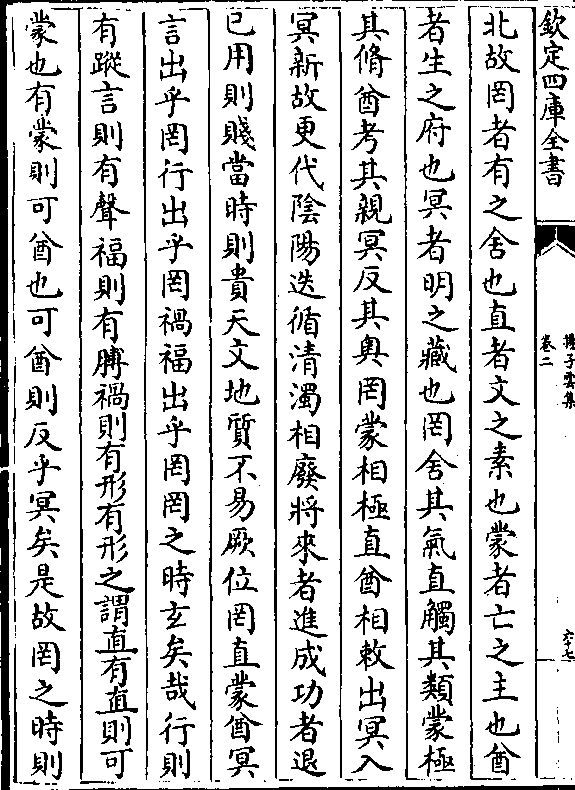 欽定四庫全書
揚子雲集
卷二
六十七
北故罔者有之舍也直者文之素也蒙者亡之主也酋
者生之府也冥者明之藏也罔舍其氣直觸其類蒙極
其脩酋考其親冥反其奥罔蒙相極直酋相敕出冥入
冥新故更代陰陽迭循清濁相廢將來者進成功者退
已用則賤當時則貴天文地質不易厥位罔直蒙酋冥
言出乎罔行出乎罔禍福出乎罔罔之時玄矣哉行則
有蹤言則有聲福則有膊禍則有形有形之謂直有直則可
蒙也有蒙則可酋也可酋則反乎冥矣是故罔之時則